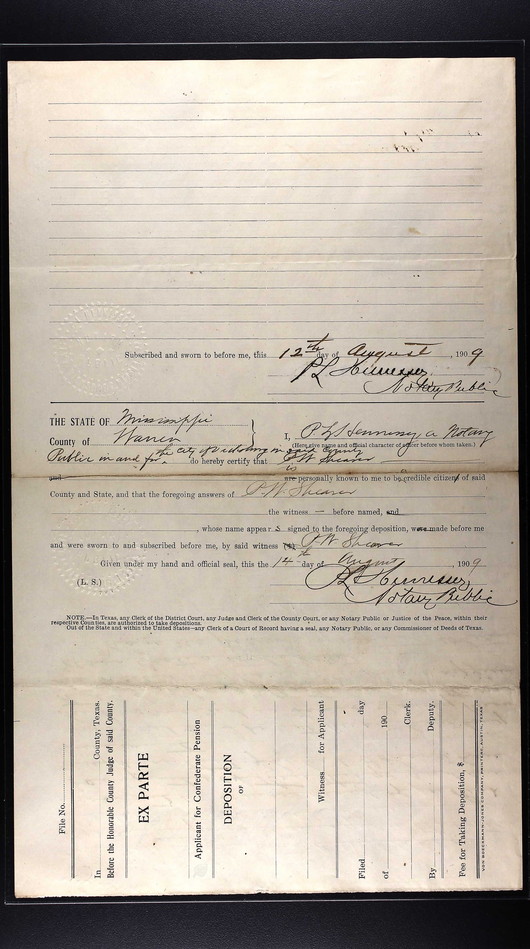 Subscribed and sworn to before me, this 12th day of August, 1909
P L Hennessey,
Notary Public
THE STATE OF Mississippi
County of Warren } I, P L Hennessey, a Notary
(Here give name and official character of officer before whom taken.)
Public in and for the City of Vicksburg in said County do hereby certify that P W Shearer
is
and are personally known to me to be credible citizens of said
County and State, and that the foregoing answers of P. W Shearer
the witness — before named, and
, whose name appears signed to the foregoing deposition, were made before me
and were sworn to and subscribed before me, by said witness P W Shearer
Given under my hand and official seal, this the 14th day of August, 1909
P L Hennessey,
(L. S.)
Notary Public
NOTE.—In Texas, any Clerk of the District Court, any Judge and Clerk of the County Court, or any Notary Public or Justice of the Peace, within their
respective Counties, are authorized to take depositions.
Out of the State and within the United States—any Clerk of a Court of Record having a seal, any Notary Public, or any Commissioner of Deeds of Texas.
File No.
In County, Texas.
Before the Honorable County Judge of said County.
EX PARTE
Applicant for Confederate Pension
DEPOSITION
OF
Witness for Applicant
Filed day
of 190
Clerk.
By Deputy.
Fee for Taking Deposition, $
VON BOECKMANN-JONES COMPANY, PRINTERS, AUSTIN, TEXAS